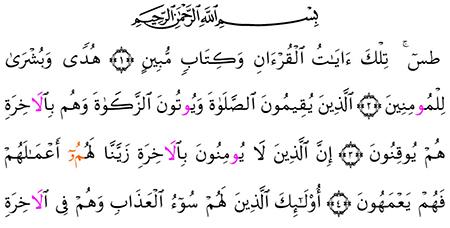 بِسْمِ ٱللَّهِ ٱلرَّحْمَٰنِ ٱلرَّحِيمِ
طسٓ ۚ تِلْكَ ءَايَٰتُ ٱلْقُرْءَانِ وَكِتَابٍ مُّبِينٍ ﴿١﴾ هُدًى وَبُشْرَىٰ
لِلْمُومِنِينَ ﴿٢﴾ ٱلَّذِينَ يُقِيمُونَ ٱلصَّلَوٰةَ وَيُوتُونَ ٱلزَّكَوٰةَ وَهُم بِٱلَاخِرَةِ
هُمْ يُوقِنُونَ ﴿٣﴾ إِنَّ ٱلَّذِينَ لَا يُومِنُونَ بِٱلَاخِرَةِ زَيَّنَّا لَهُمُۥٓ أَعْمَٰلَهُمْ
فَهُمْ يَعْمَهُونَ ﴿٤﴾ أُوْلَٰٓئِكَ ٱلَّذِينَ لَهُمْ سُوٓءُ ٱلْعَذَابِ وَهُمْ فِى ٱلَاخِرَةِ